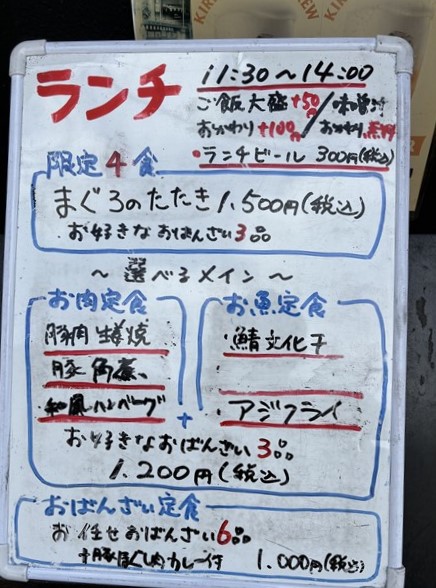 ランチ
11:30〜14:00
ご飯大盛+50円/味噌汁
おかわり+100円/おかわり無料
・ランチビール 300円(税込)
限定4食
まぐろのたたき 1,500円(税込)
お好きなおばんざい3品
〜選べるメイン〜
お肉定食
豚肉生姜焼
豚角煮
和風ハンバーグ
お魚定食
・鯖文化干
・アジフライ
+
お好きなおばんざい3品
1,200円(税込)
おばんざい定食
お任せおばんざい6品
+豚ほぐし肉カレー付 1,000円(税込)